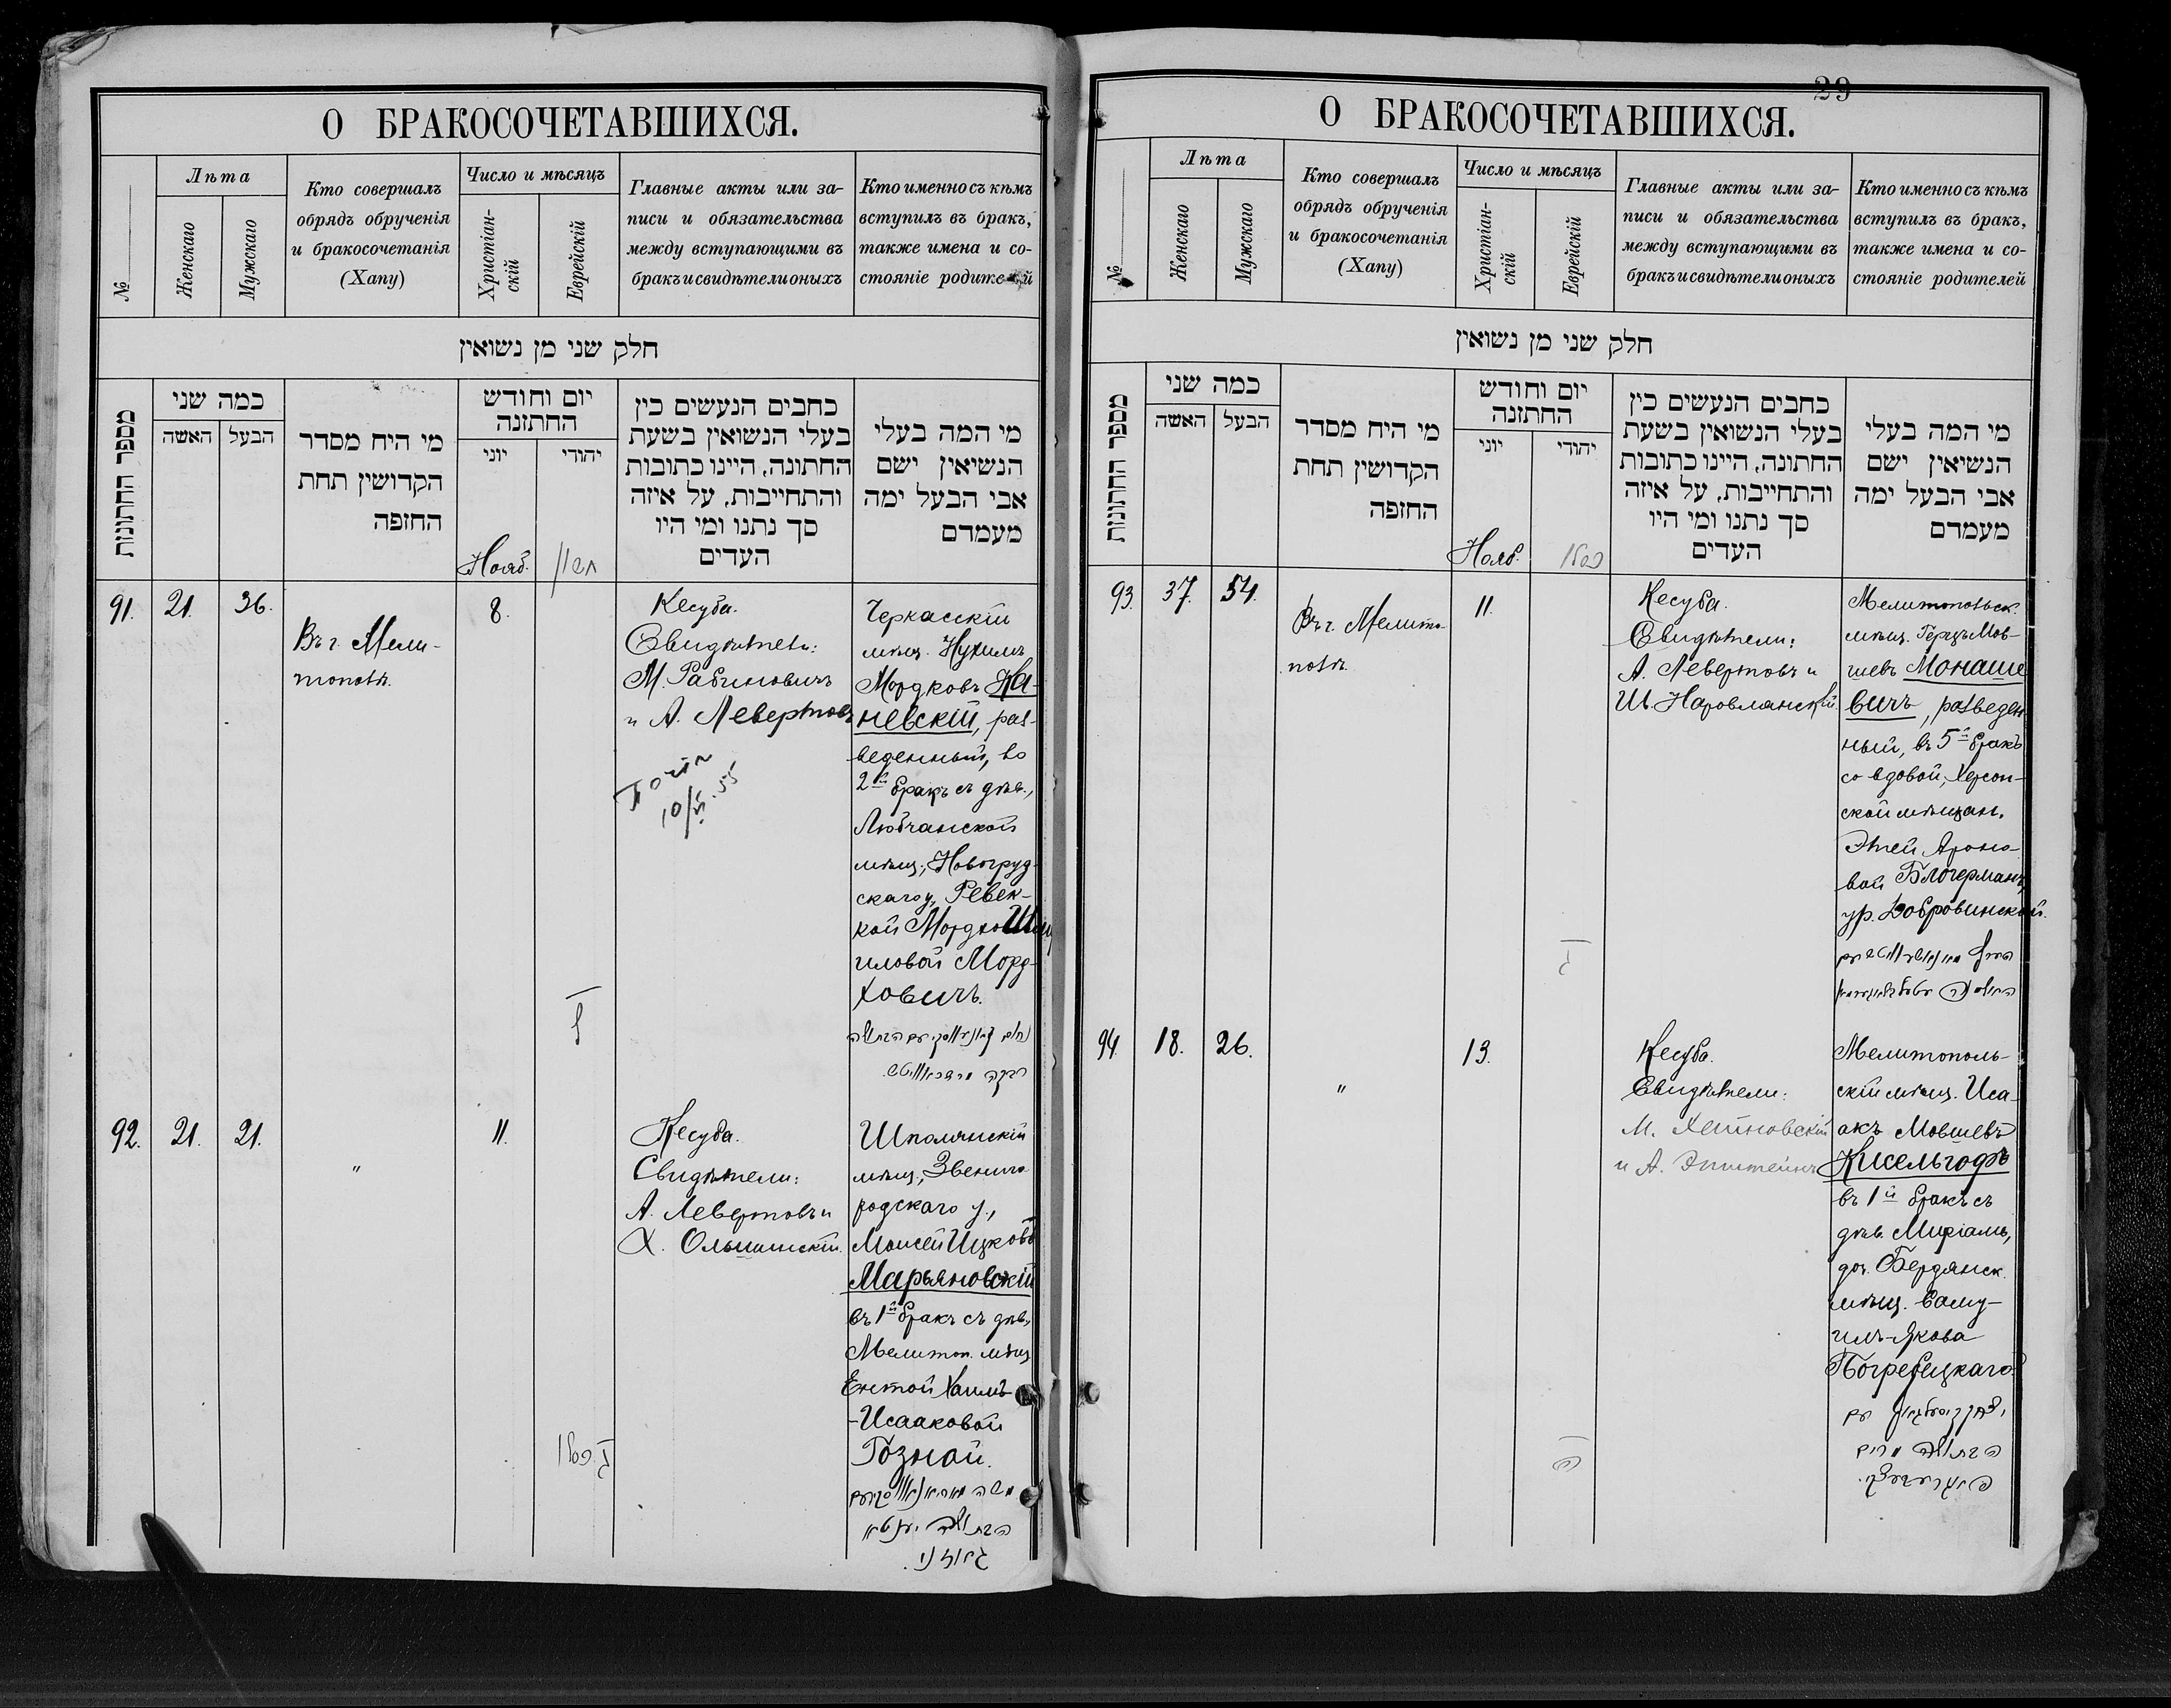 О БРАКОСОЧЕТАВШИХСЯ.
№
Лѣта
Женскаго
Мужскаго
Кто совершалъ
обрядъ обрученія
и бракосочетанія
(Хапу)
Число и мѣсяцъ
Христіан-
скій
Еврейскій
Главные акты или за-
писи и обязательства
между вступающими въ
бракъ и свидѣтели оныхъ
Кто именно съ кѣмъ
вступилъ въ бракъ,
также имена и со-
стояніе родителей
חלק שני מן נשואין
מספר החתונות
כמה שני
האשה
הבעל
מי היח מסדר
הקדושין תחת
החזפה
יום וחודש
החתזנה
יוני
יהודי
כחבים הנעשים כין
בעלי הנשואין בשעת
החתונה, היינו כתובות
והתחייבות, על איזה
סך נתנו ומי היו
העדים
מי המה בעלי
הנשיאין ישם
אבי הבעל ימה
מעמדם
Нояб.
חשון
91. 21. 36.
Въ г. Мели-
тополѣ.
8.
Кесуба.
Свидѣтели:
М. Рабиновичъ
и А. Левертовъ
10/VI.55
Черкасскій
мѣщ. Нухимъ
Мордковъ Ка-
невскій, раз-
веденный, во
2й бракъ съ дѣв.,
Любчанской
мѣщ., Новогруд-
скаго у., Ревек-
кой Мордко Шму
иловой Морд-
ховичъ.
92. 21. 21.
"
11.
Кесуба.
Свидѣтели:
А. Левертовъ и
Х. Ольшанскій.
Шполянскій
мѣщ., Звениго-
родскаго у.,
Моисей Ицковъ
Марьяновскій
въ 1й бракъ съ дѣв.,
Мелитоп. мѣщ
Ентой Хаимъ
-Исааковой
Гозной.
ג כסלו
משה מאריאנאווסקי עם
הבתולה יענטא
גוזני.
29
О БРАКОСОЧЕТАВШИХСЯ.
№
Лѣта
Женскаго
Мужскаго
Кто совершалъ
обрядъ обрученія
и бракосочетанія
(Хапу)
Число и мѣсяцъ
Христіан-
скій
Еврейскій
Главные акты или за-
писи и обязательства
между вступающими въ
бракъ и свидѣтели оныхъ
Кто именно съ кѣмъ
вступилъ въ бракъ,
также имена и со-
стояніе родителей
חלק שני מן נשואין
מספר החתונות
כמה שני
האשה
הבעל
מי היח מסדר
הקדושין תחת
החזפה
יום וחודש
החתזנה
יוני
יהודי
כחבים הנעשים כין
בעלי הנשואין בשעת
החתונה, היינו כתובות
והתחייבות, על איזה
סך נתנו ומי היו
העדים
מי המה בעלי
הנשיאין ישם
אבי הבעל ימה
מעמדם
Нояб.
כסלו
93. 37. 54.
Въ г. Мелито-
полѣ.
11.
ג
Кесуба.
Свидѣтели:
А. Левертовъ и
Ш. Наровлянскій.
Мелитопольск
мѣщ. Герцъ Мов-
шевъ Монаше
вичъ, разведен
ный, въ 5й бракъ
со вдовой, Херсон-
ской мѣщан.
Этей Ароно-
вой Блогерманъ,
ур. Добровинской.
94. 18. 26.
"
13.
ה
Кесуба.
Свидѣтели:
М. Хейновскій
и А. Эпштейнъ
Мелитополь-
скій мѣщ. Иса-
акъ Мовшевъ
Кисельгофъ
въ 1й бракъ съ
дѣв. Миріамъ,
доч. Бердянск.
мѣщ. Саму-
илъ-Якова
Погребецкаго.
יצחק קיסעלגאף עם
הבתולה מרים
פאגרעבעצקי.